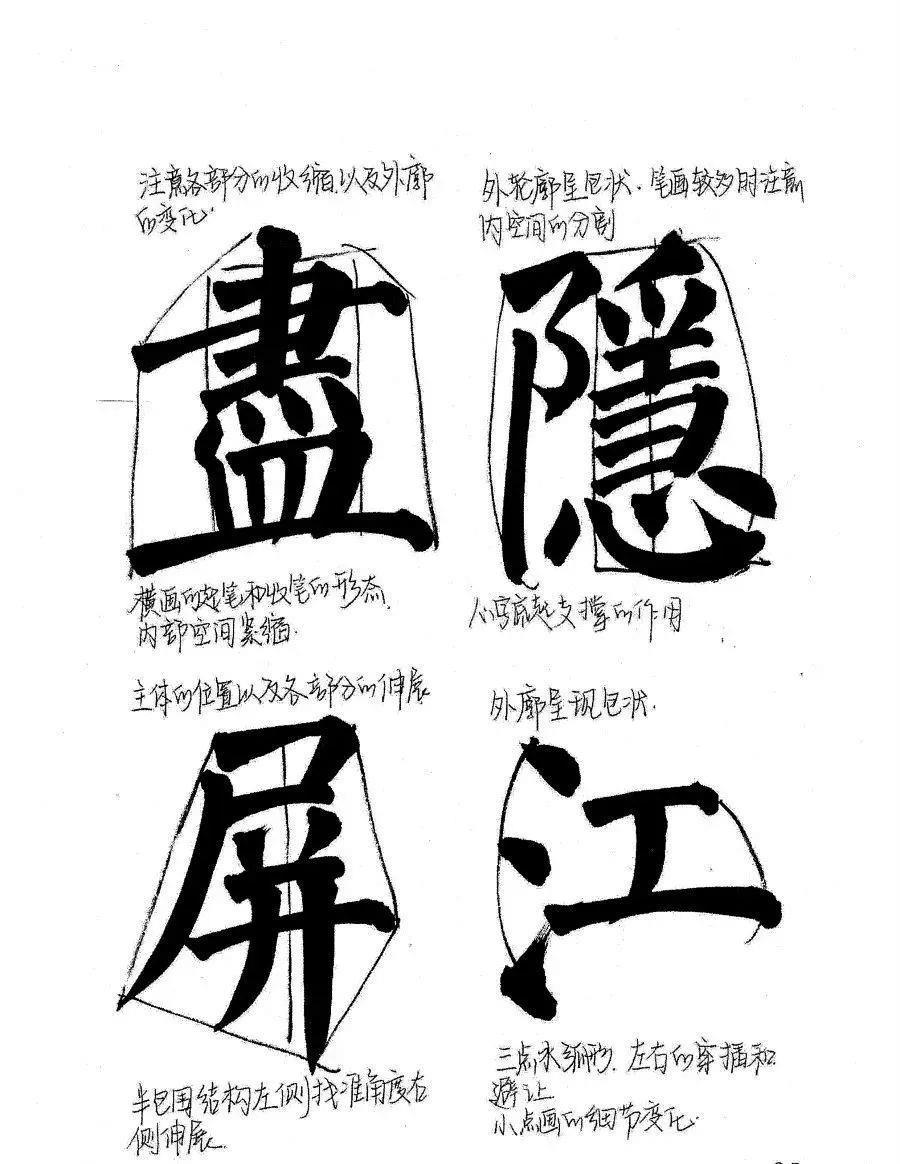 注意各部分的收缩以及外廓
的变化.
盡
横画的起笔和收笔的形态.
内部空间紧缩.
外轮廓呈包状.笔画较多时注意
内空间的分割
隱
心字底起支撑的作用
主体的位置以及各部分的伸展
屏
半包围结构左侧找准角度右
侧伸展.
外廓呈现包状.
江
三点水弧形.左右的穿插和
避让
小点画的细节变化.